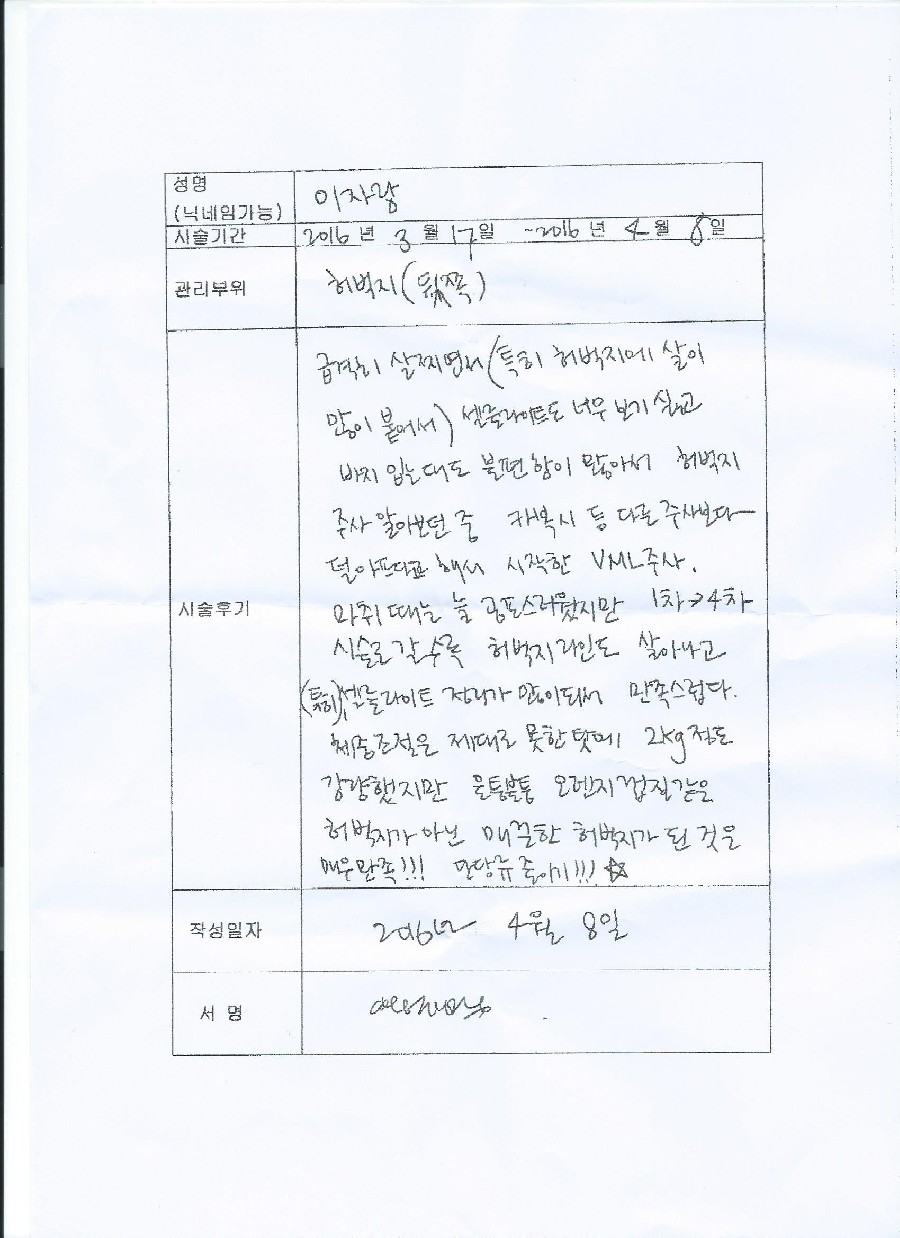 성명
(닉네임가능)
이자랑
시술기간
2016 년 3 월 17 일 ~2016 년 4 월 8 일
관리부위
허벅지 (뒷쪽)
시술후기
급격히 살찌면서 (특히 허벅지에 살이
많이 붙어서) 셀룰라이트도 너무 보기 싫고
바지 입는데도 불편함이 많아서 허벅지
주사 알아보던 중 카복시 등 다른 주사보다
덜 아프다고 해서 시작한 VML주사.
마취 때는 늘 공포스러웠지만 1차→4차
시술로 갈수록 허벅지라인도 살아나고
(특히) 셀룰라이트 정리가 많이되서 만족스럽다.
체중조절은 제대로 못한 탓에 2kg 정도
감량했지만 울퉁불퉁 오렌지 껍질같은
허벅지가 아닌 매끈한 허벅지가 된 것을
매우 만족!!! 좋아!!! ☆
작성일자
2016년 4월 8일
서 명